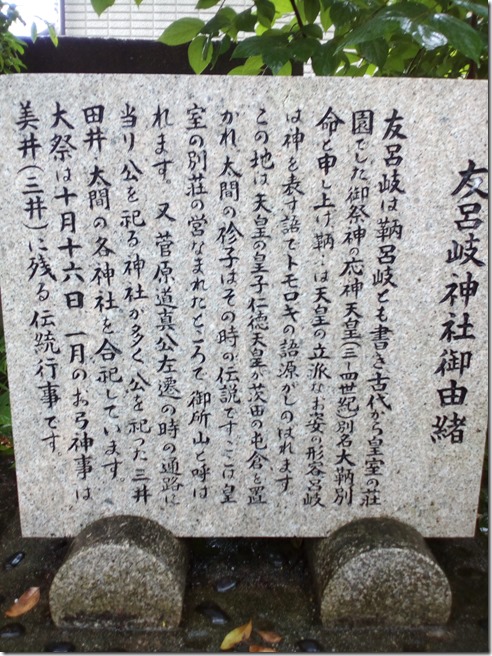 友呂岐神社御由緒
友呂岐は鞆呂岐とも書き古代から皇室の荘
園でした御祭神の応神天皇(三〜四世紀)別名大鞆別
命と申し上げ鞆、は天皇の立派なお姿の形容呂岐
は神を表す語でトモロキの語源がしのばれます
この地は天皇の皇子仁徳天皇が茨田の屯倉を置
かれ太間の衫子はその時の伝説ですここは皇
室の別荘の営なまれたところで御所山と呼ば
れます。又菅原道真公左遷の時の通路に
当り公を祀る神社が多く公を祀った三井
田井、太間の各神社を合祀しています。
大祭は十月十六日 一月のお弓神事は
美井(三井)に残る伝統行事です。